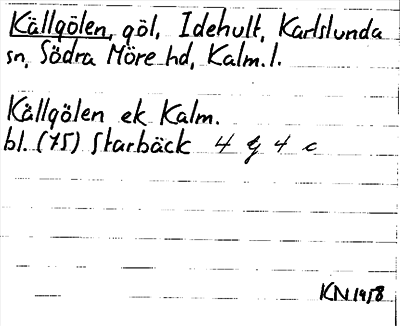 Källgölen, göl, Idehult, Karlslunda
sn, Södra Möre hd, Kalm. l.
Källgölen ek Kalm.
bl. (75) Starbäck 4 G 4 c
KN 1958